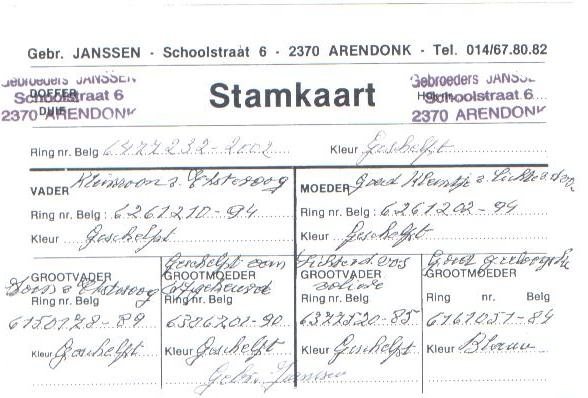 Gebr. JANSSEN - Schoolstraat 6 - 2370 ARENDONK - Tel. 014/67.80.82
Gebroeders JANSSEN
Schoolstraat 6
2370 ARENDONK
DOFFER
DUIF
Stamkaart
Gebroeders JANSSE
Schoolstraat 6
2370 ARENDONK
Ring nr. Belg 6477232-2002 Kleur Geschelpt
VADER Kleinzoon
Ring nr. Belg : 6261210-94
Kleur Geschelpt
MOEDER Goed Kleintje
Ring nr. Belg : 6261202-94
Kleur Geschelpt
GROOTVADER
Ring nr. Belg
6150178-89
Kleur Geschelpt
Geschelpt van
GROOTMOEDER
Ring nr. Belg
6306201-90
Kleur Geschelpt
GROOTVADER
voliere
Ring nr. Belg
6377520-85
Kleur Geschelpt
GROOTMOEDER
Ring nr. Belg
6161051-84
Kleur Blauw
Gebr. Janssen